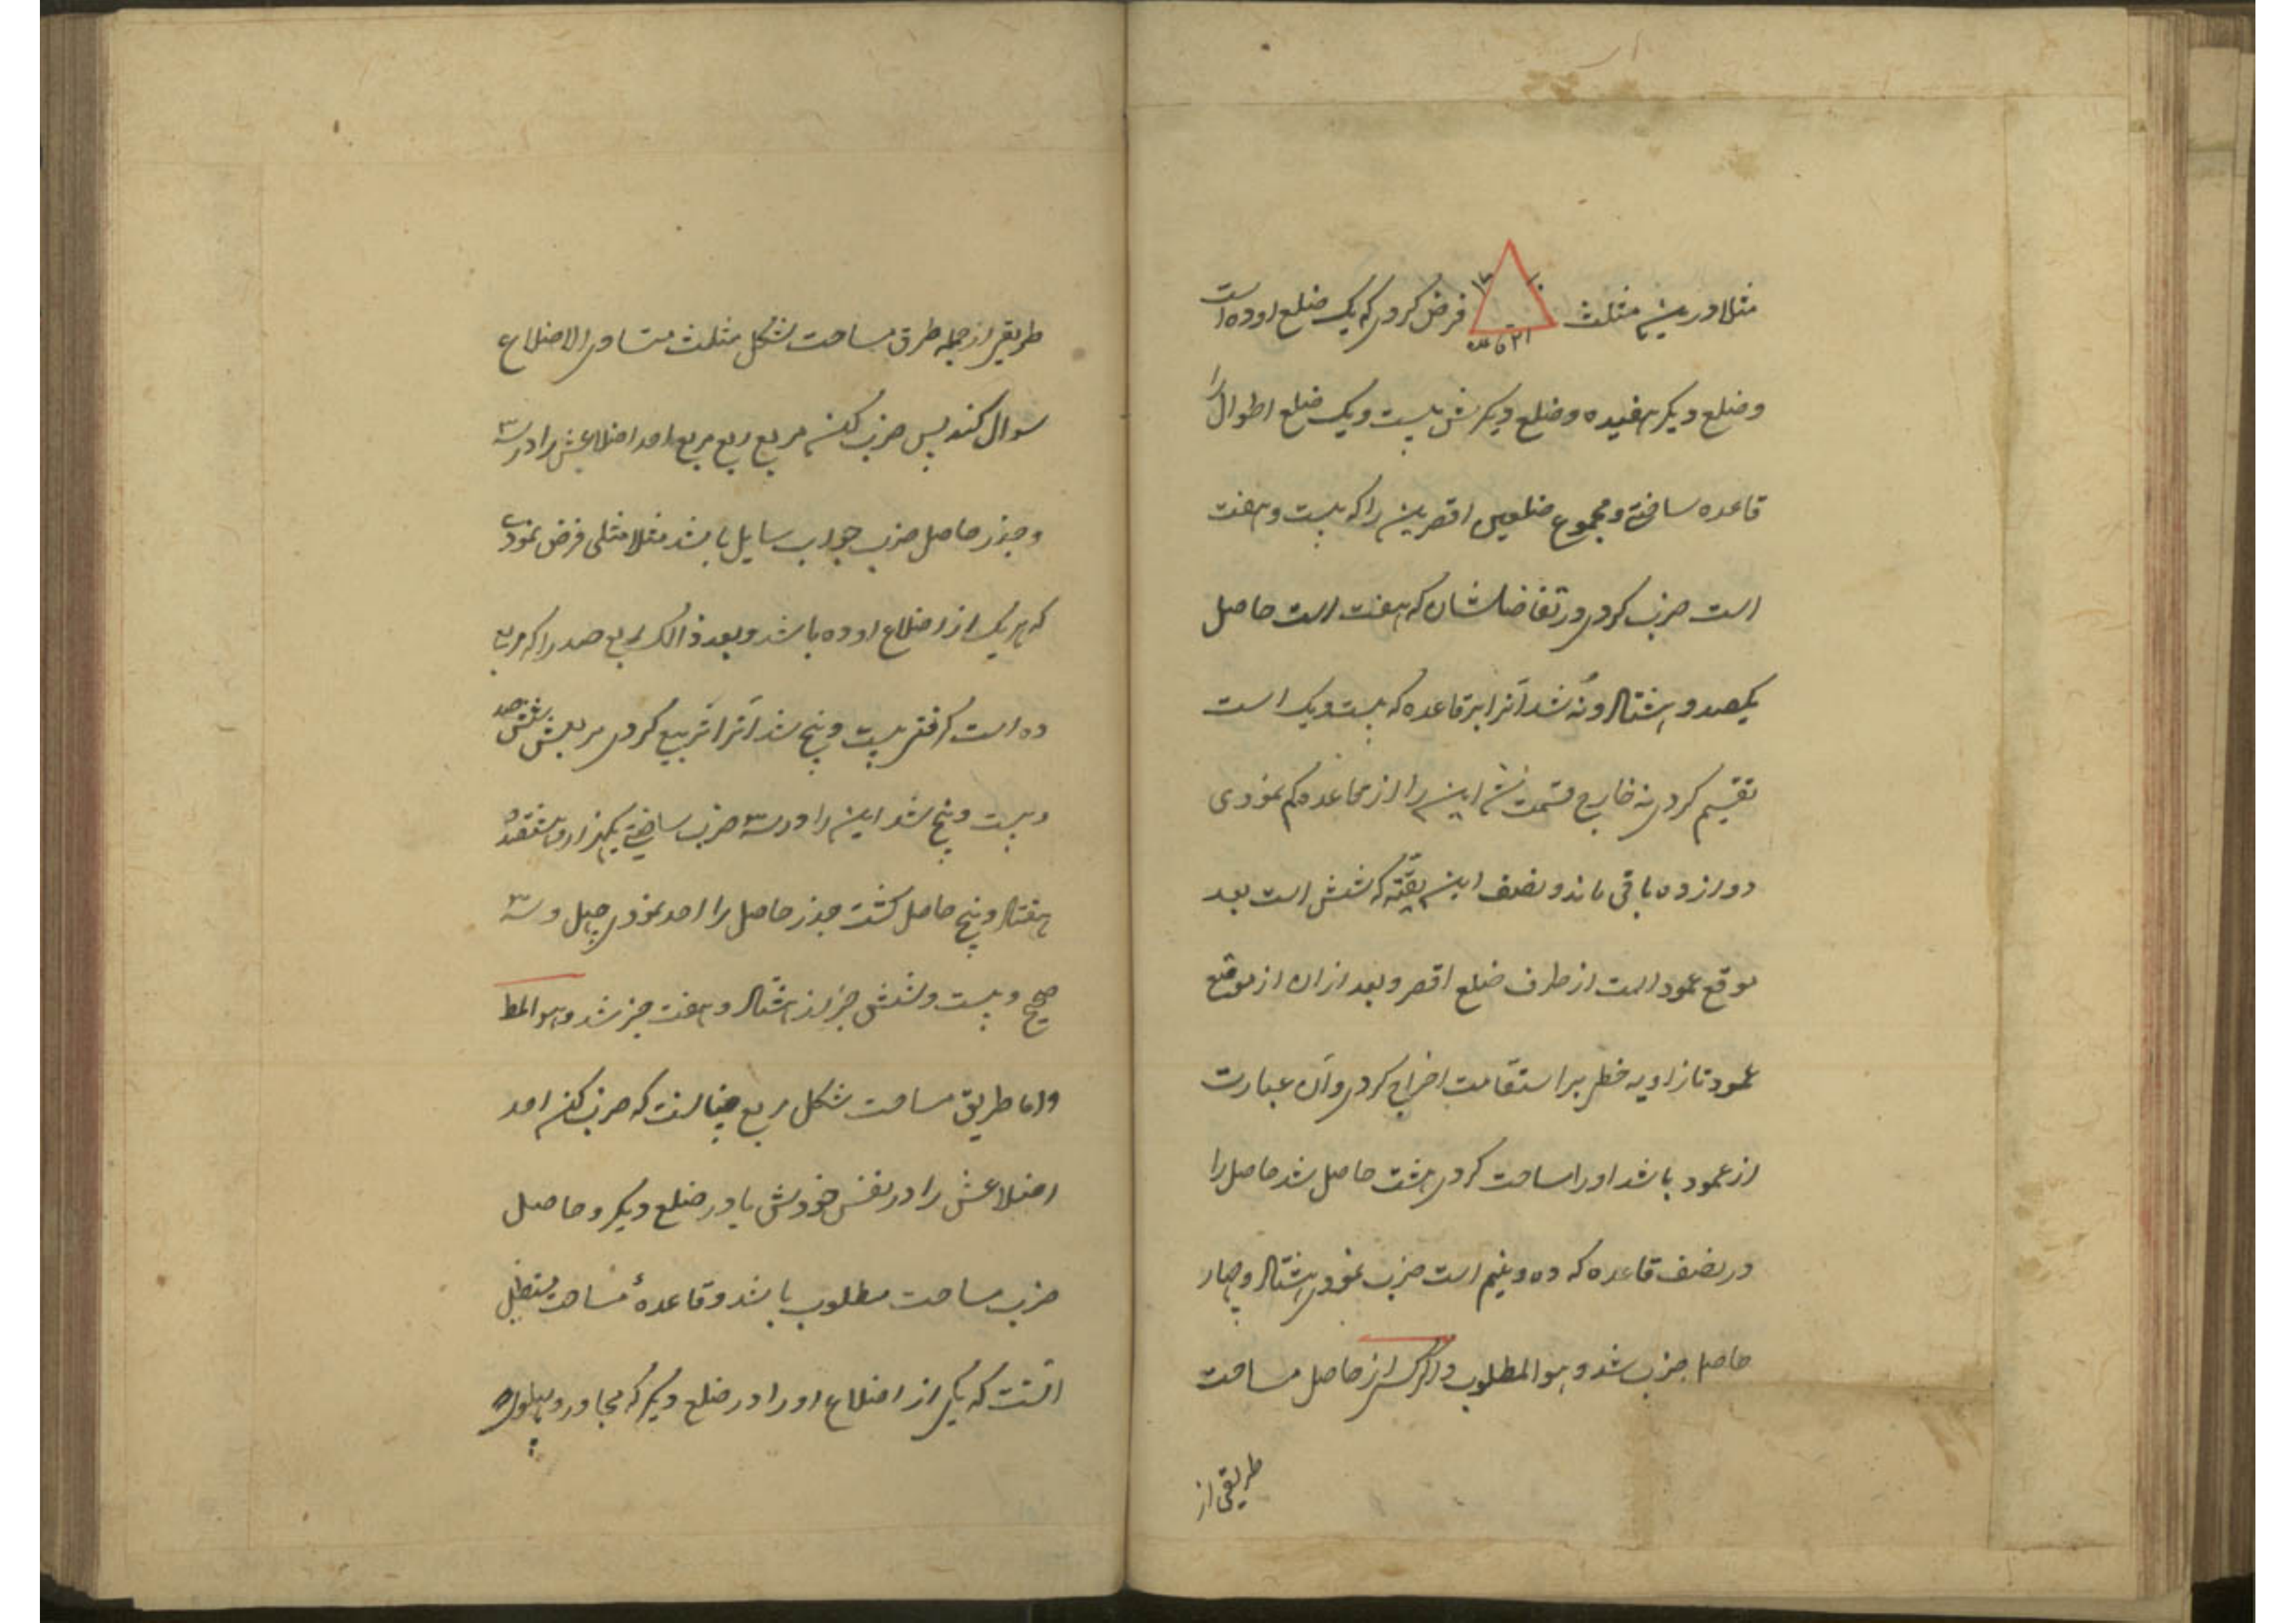 مثلا درین مثلث فرض کردی که یک ضلع او ده است
۱۷
۱۰
۲۱ قاعده
و ضلع دیگر هفده و ضلع دیگرش بیست ویک ضلع اطوال را
قاعده ساختی و مجموع ضلعین اقصرین را که بیست و هفت
است ضرب کردی در تفاضلشان که هفت است حاصل
یکصد و هشتاد و نه شد آنرا بر قاعده که بیست ویک است
تقسیم کردی نه خارج قسمت شد این را از قاعده کم نمودی
دوازده باقی ماند و نصف این بقیه که شش است بعد
موقع عمود است از طرف ضلع اقصر و بعد ازان از موقع
عمود تا زاویه خطی بر استقامت اخراج کردی و آن عبارت
از عمود باشد اورا مساحت کردی هشت حاصل شد حاصل را
در نصف قاعده که ده و نیم است ضرب نمودی هشتاد و چهار
حاصل ضرب شد و هوالمطلوب و اگر کسی از حاصل مساحت
طریقی از
طریقی از جمله طرق مساحت شکل مثلث متساوی الاضلاع
سوال کند پس ضرب کن مربع ربع مربع احد اضلاعش را در سه
و جذر حاصل ضرب جواب سایل باشد مثلا مثلثی فرض نمودی
که هریک از اضلاع او ده باشد و بعد ذالک ربع صد را که مربع
ده است گرفتی بیست و پنج شد آنرا تربیع کردی مربعش ششصد
و بیست و پنج شد این را در سه ضرب ساختی یکهزار و هشتصد و
هفتاد و پنج حاصل گشت جذر حاصل را اخذ نمودی چهل و سه
صحیح و بیست و شش جز از هشتاد و هفت جز شد و هوالمط
واما طریق مساحت شکل مربع چنانست که ضرب کن احد
اضلاعش را در نفس خودش یا در ضلع دیگر و حاصل
ضرب مساحت مطلوب باشد و قاعدهٔ مساحت مستطیل
آنست که یکی از اضلاع اورا در ضلع دیگر که مجاور و پهلوی